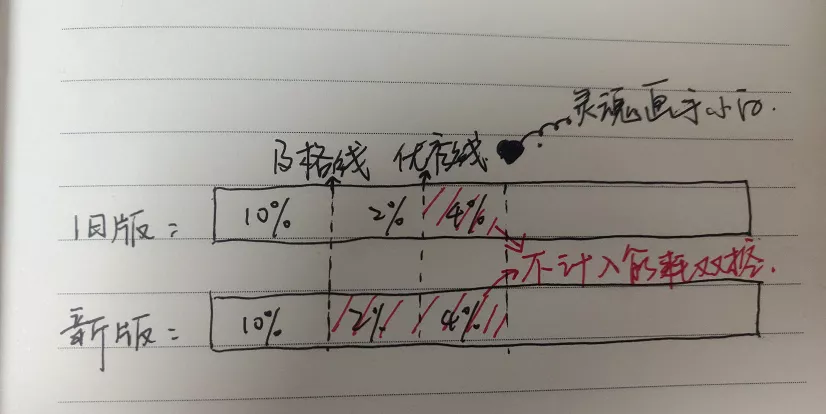 灵魂画手小白.
及格线 优秀线
旧版: 10% 2% 4%
不计入能耗双控.
新版: 10% 2% 4%